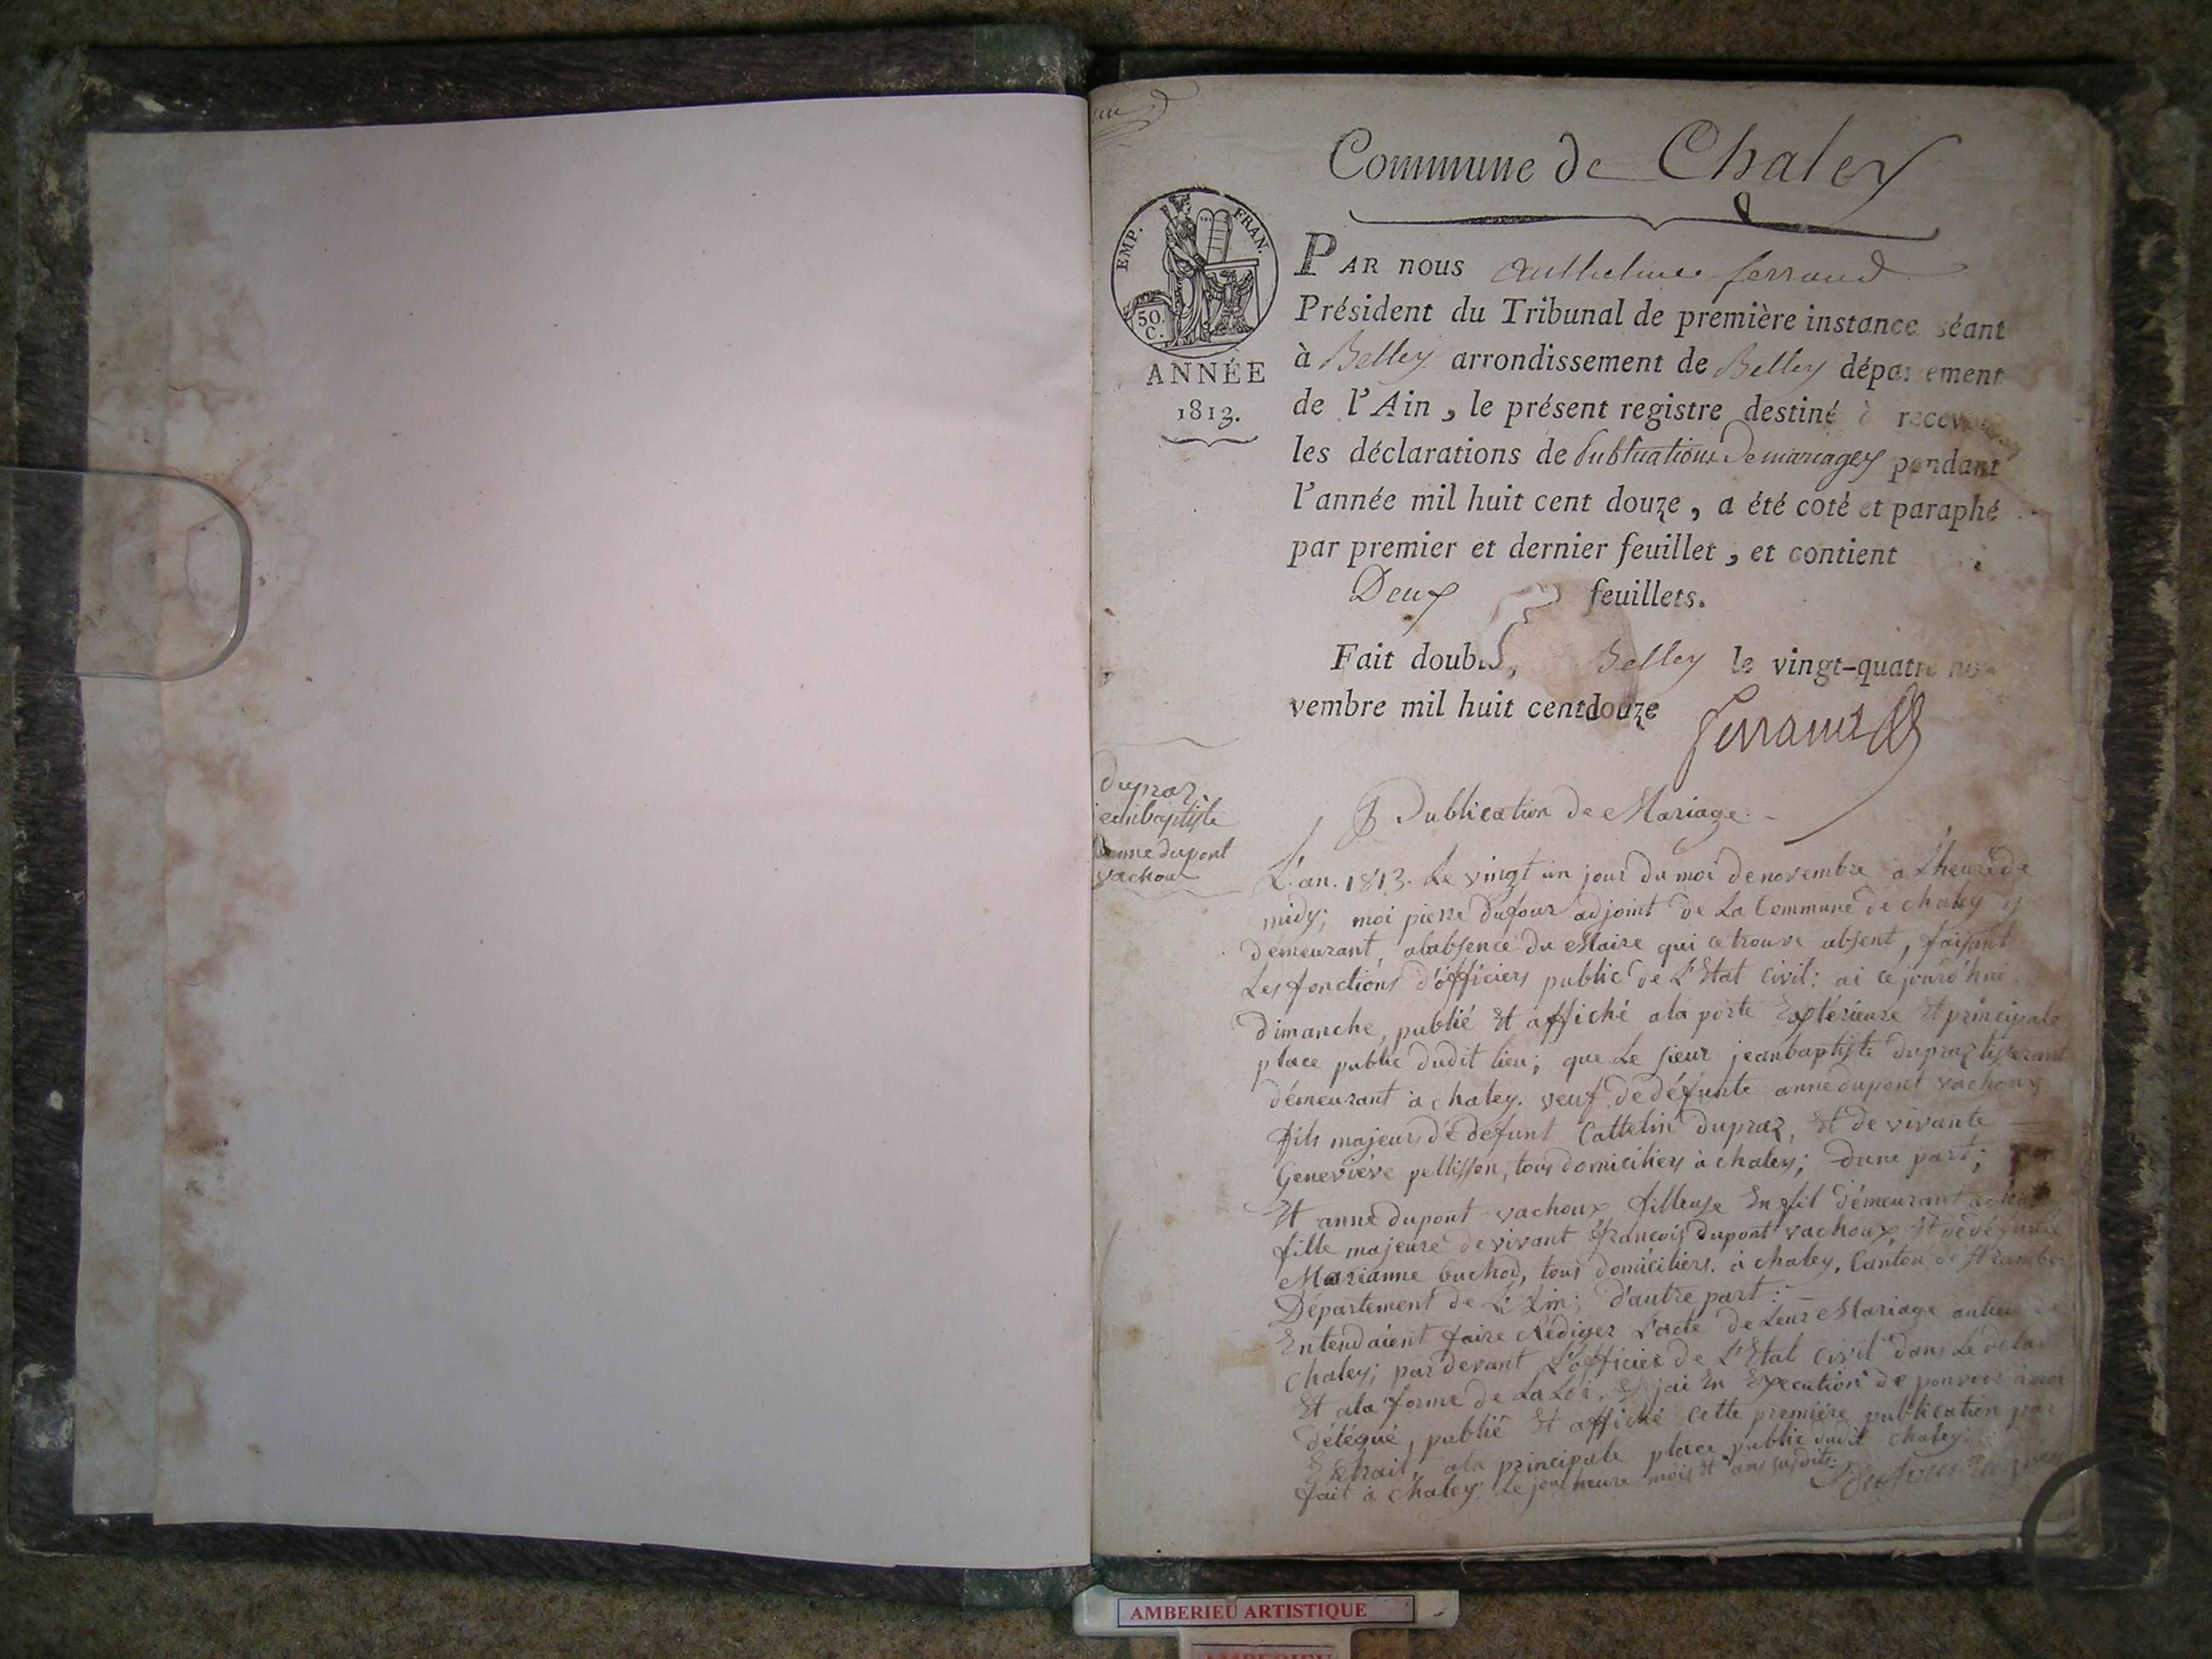 Commune de Chaley
EMP. FRAN.
50.
C.
ANNÉE
1813.
PAR nous anthelme ferrand
Président du Tribunal de première instance séant
à Belley arrondissement de Belley département
de l'Ain, le présent registre destiné à recevoir
les déclarations de Publications de mariages pendant
l'année mil huit cent douze, a été coté et paraphé
par premier et dernier feuillet, et contient
Deux feuillets.
Fait double, Belley le vingt-quatre no-
vembre mil huit cent douze
ferrand
dupraz
eanbaptiste
anne dupont
vachoux
Publication de Mariage.
L'an. 1813. Le vingt un jour du moi de novembre à L'heure de
midy; moi pierre dufour adjoint de La Commune de chaley y
démeurant, alabsence du Maire qui ce trouve absent, faisant
Les fonctions d'officiers public de L'Etat civil: ai ce jourd'hui
dimanche, publié Et affiché ala porte Extérieure Et principale
place public dudit lieu; que Le sieur jeanbaptiste dupraz tisserant
démeurant à chaley. veuf de défunte anne dupont vachoux
fils majeur de defunt Cattelin dupraz, Et de vivante
Geneviève pellisson, tous domiciliez à chaley; dune part;
Et anne dupont vachoux filleuse En fil démeurant
fille majeure de vivant francois dupont vachoux, Et de défunte
Marianne buchod, tous domiciliers. à chaley, Canton de St rambert
Département de L'Ain; d'autre part:
Entendaient faire Rédiger L'acte de Leur Mariage
chaley; par devant L'officier de L'Etat civil dans Le délai
Et ala forme de La Loi, Et jai En Execution de pouvoir
délégué, publié Et affiché Cette première publication par
Extrait, ala principale place public dudit chaley.
fait à chaley Le jour heure mois Et ans susdits.
AMBERIEU ARTISTIQUE